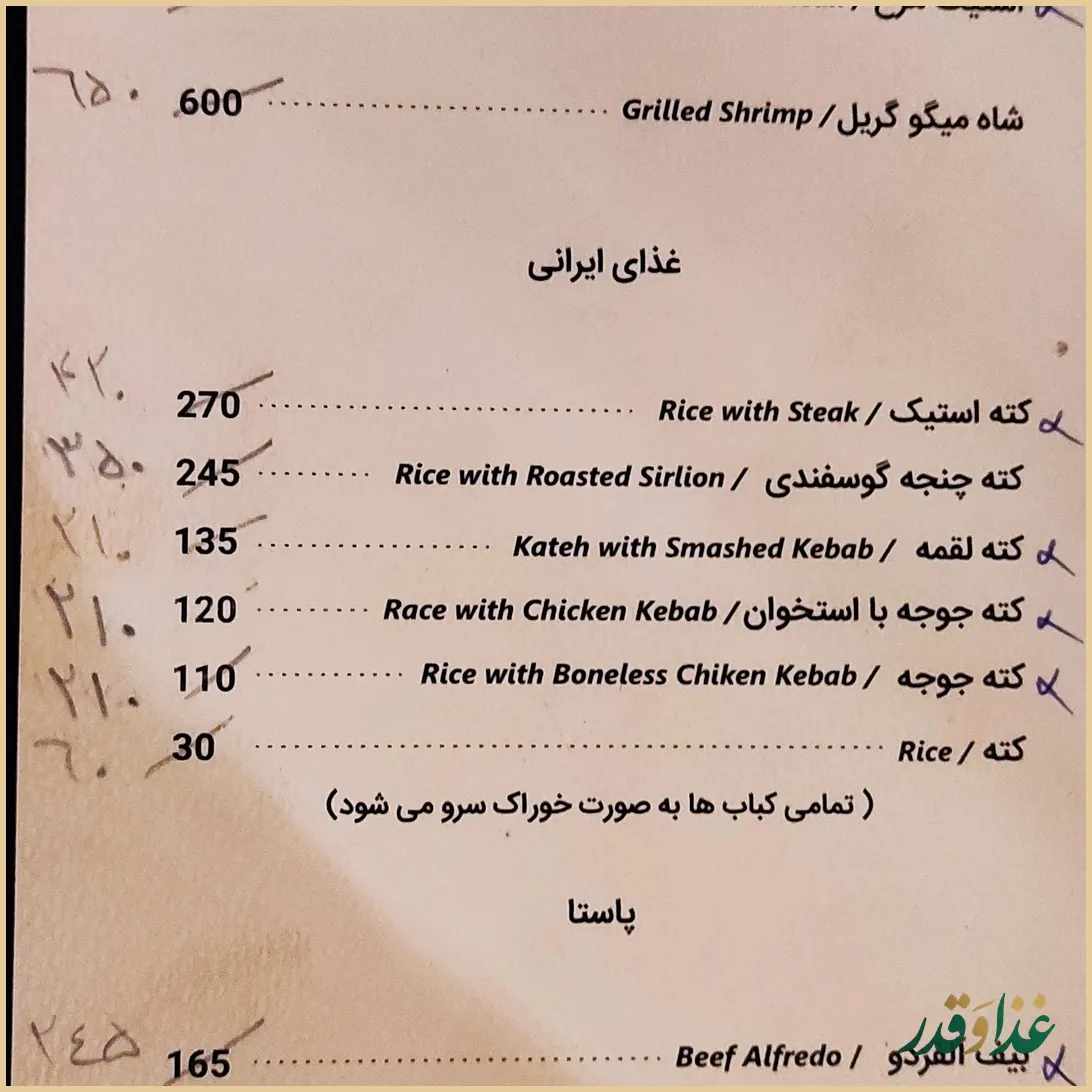 شاه میگو گریل / Grilled Shrimp 600 ٦٥٠
غذای ایرانی
کته استیک / Rice with Steak 270 ۴۲۰
کته چنجه گوسفندی / Rice with Roasted Sirlion 245 ۳۵۰
کته لقمه / Kateh with Smashed Kebab 135 ۲۱۰
کته جوجه با استخوان / Race with Chicken Kebab 120 ۲۱۰
کته جوجه / Rice with Boneless Chiken Kebab 110 ۲۱۰
کته / Rice 30 ٦٠
( تمامی کباب ها به صورت خوراک سرو می شود)
پاستا
بیف آلفردو / Beef Alfredo 165 ۲٤۵
غذا و قدر